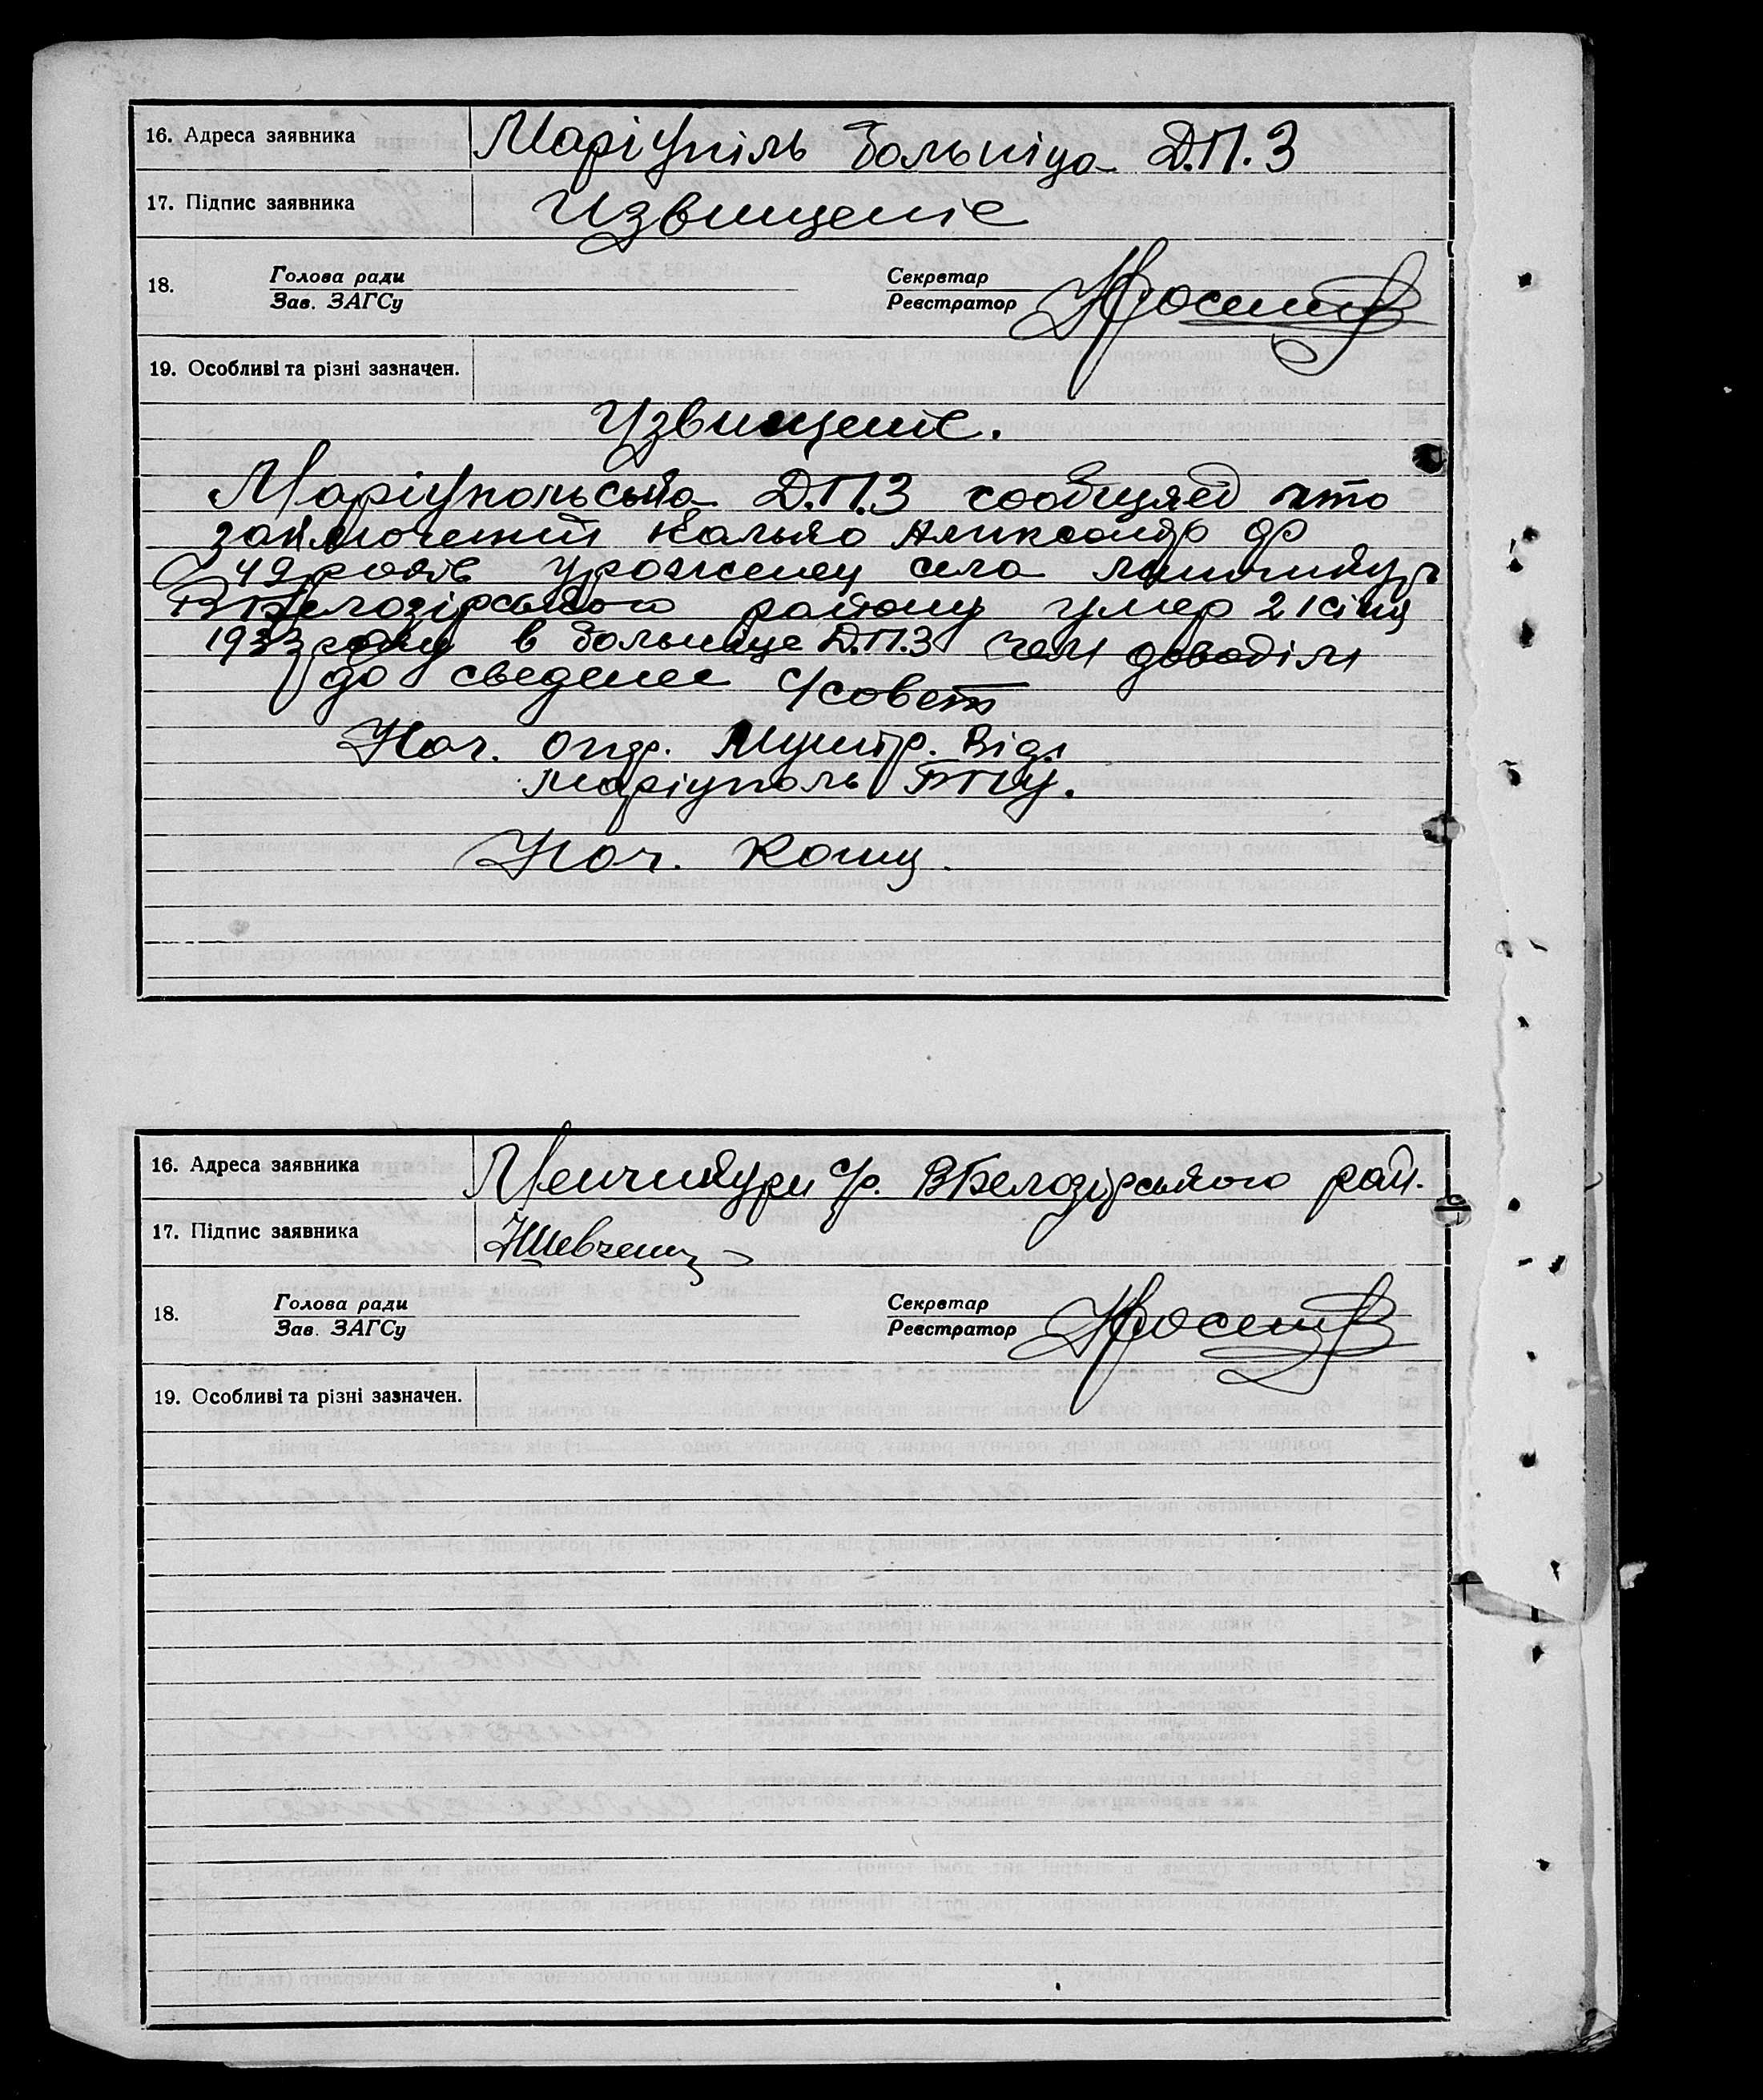 16. Адреса заявника Маріупіль больніца Д.П.З
17. Підпис заявника Извищеніе
18. Голова ради Зав. ЗАГСу Секретар Реєстратор
19. Особливі та різні зазначен.
Узвищеніе.
Маріупольська Д.П.З сообщяєд что
заключеній Калько Александр
49 років уроженец села
ВБелозірського району умер 21 січц
1933 року в больніце Д.П.З чем доводім
до сведенее с/совет
Нач. опер.
Маріуполь
Нач. Кошц.
16. Адреса заявника Менчикури с/р. ВБелозірського рай.
17. Підпис заявника НШевченц
18. Голова ради Зав. ЗАГСу Секретар Реєстратор
19. Особливі та різні зазначен.